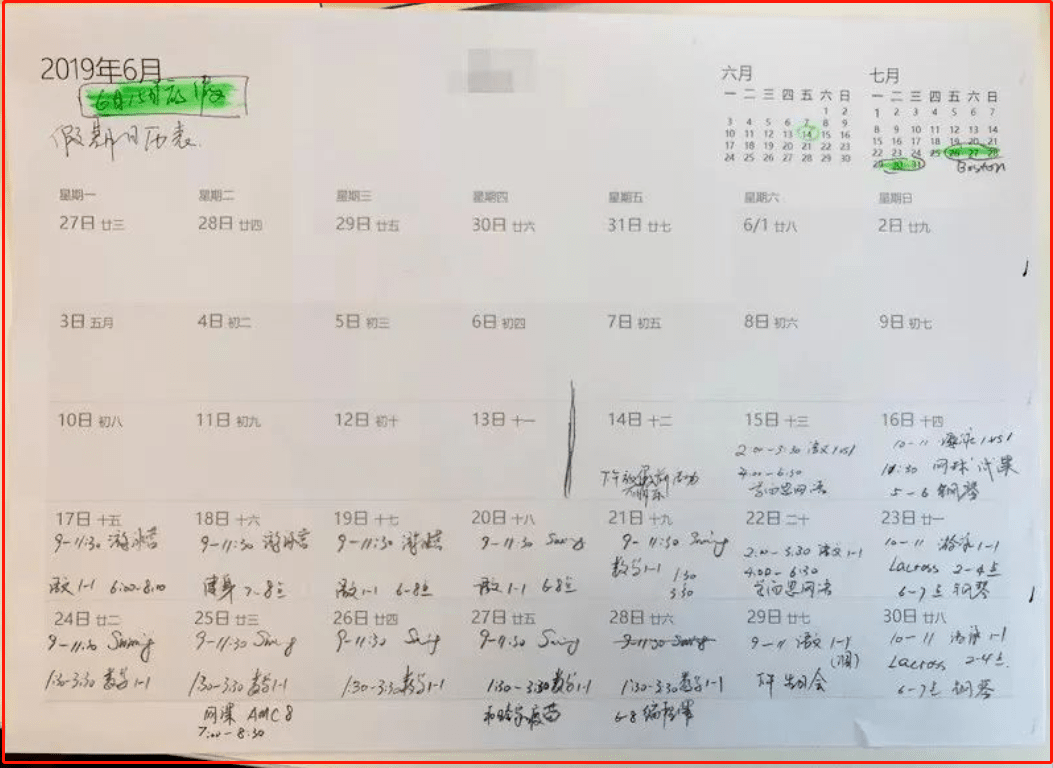 2019年6月
假期日历表
六月
一 二 三 四 五 六 日
1 2
3 4 5 6 7 8 9
10 11 12 13 14 15 16
17 18 19 20 21 22 23
24 25 26 27 28 29 30
七月
一 二 三 四 五 六 日
1 2 3 4 5 6 7
8 9 10 11 12 13 14
15 16 17 18 19 20 21
22 23 24 25 26 27 28
29 30 31
Boston
星期一 星期二 星期三 星期四 星期五 星期六 星期日
27日 廿三 28日 廿四 29日 廿五 30日 廿六 31日 廿七 6/1 廿八 2日 廿九
3日 五月 4日 初二 5日 初三 6日 初四 7日 初五 8日 初六 9日 初七
10日 初八 11日 初九 12日 初十 13日 十一 14日 十二 15日 十三 16日 十四
2:00-3:30 语文1vs1 10-11 游泳1vs1
4:00-6:30 网球试课
学而思网课 5-6 钢琴
17日 十五 18日 十六 19日 十七 20日 十八 21日 十九 22日 二十 23日 廿一
9-11:30 游泳营 9-11:30 游泳营 9-11:30 游泳营 9-11:30 9-11:30 2:00-3:30 语文1-1 10-11 游泳1-1
语文1-1 6:00-8:00 健身 7-8点 语文1-1 6-8点 语文1-1 6-8点 数学1-1 1:30 3:30 4:00-6:30 Lacross 2-4点
学而思网课 6-7点 钢琴
24日 廿二 25日 廿三 26日 廿四 27日 廿五 28日 廿六 29日 廿七 30日 廿八
9-11:30 9-11:30 9-11:30 9-11:30 9-11:30 9-11 语文1-1 10-11 游泳1-1
1:30-3:30 数学1-1 1:30-3:30 数学1-1 1:30-3:30 数学1-1 1:30-3:30 数学1-1 1:30-3:30 数学1-1 下午 生日会 Lacross 2-4点
网课 AMC 8 6-8 编程课 6-7点 钢琴
7:00-8:30